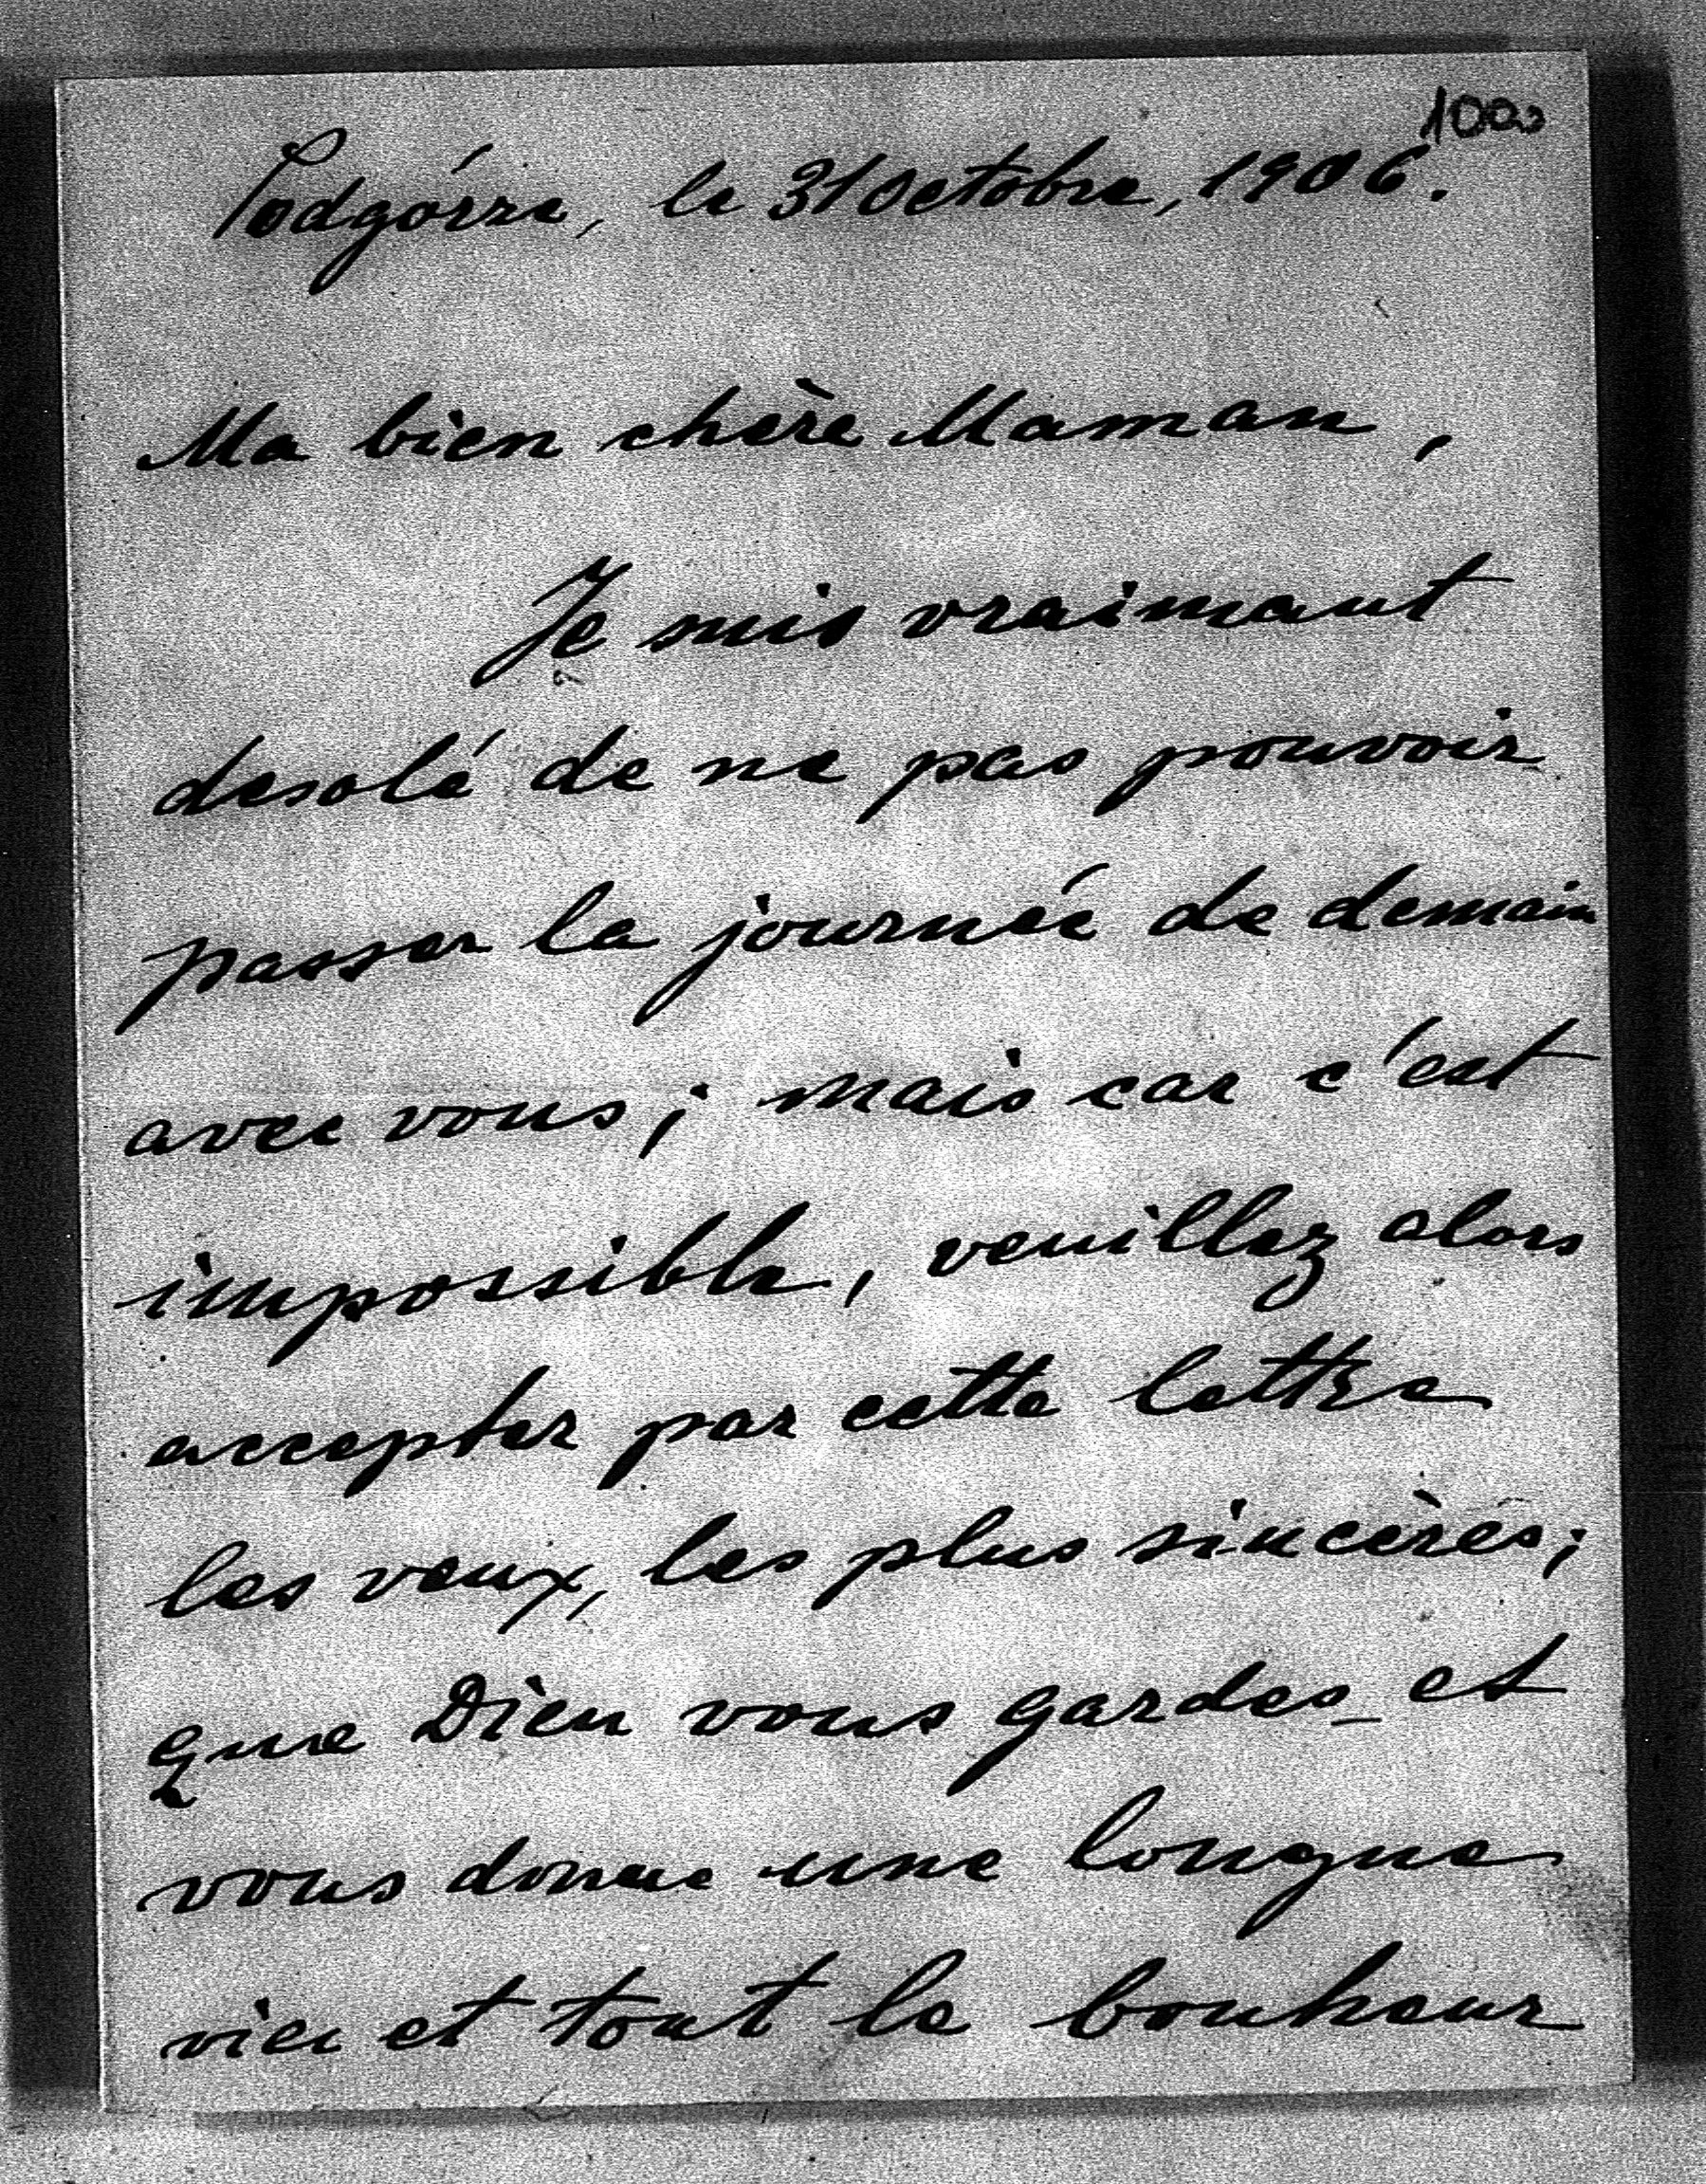 100
Podgórze, le 31 Octobre, 1906.
Ma bien chère Maman,
Je suis vraimant
desolé de ne pas pouvoir
passer la journée de demain
avec vous; mais car c'est
impossible, veuillez alors
accepter par cette lettre
les veux, les plus sincères;
que Dieu vous gardes et
vous donne une longue
vie et tout le bonheur